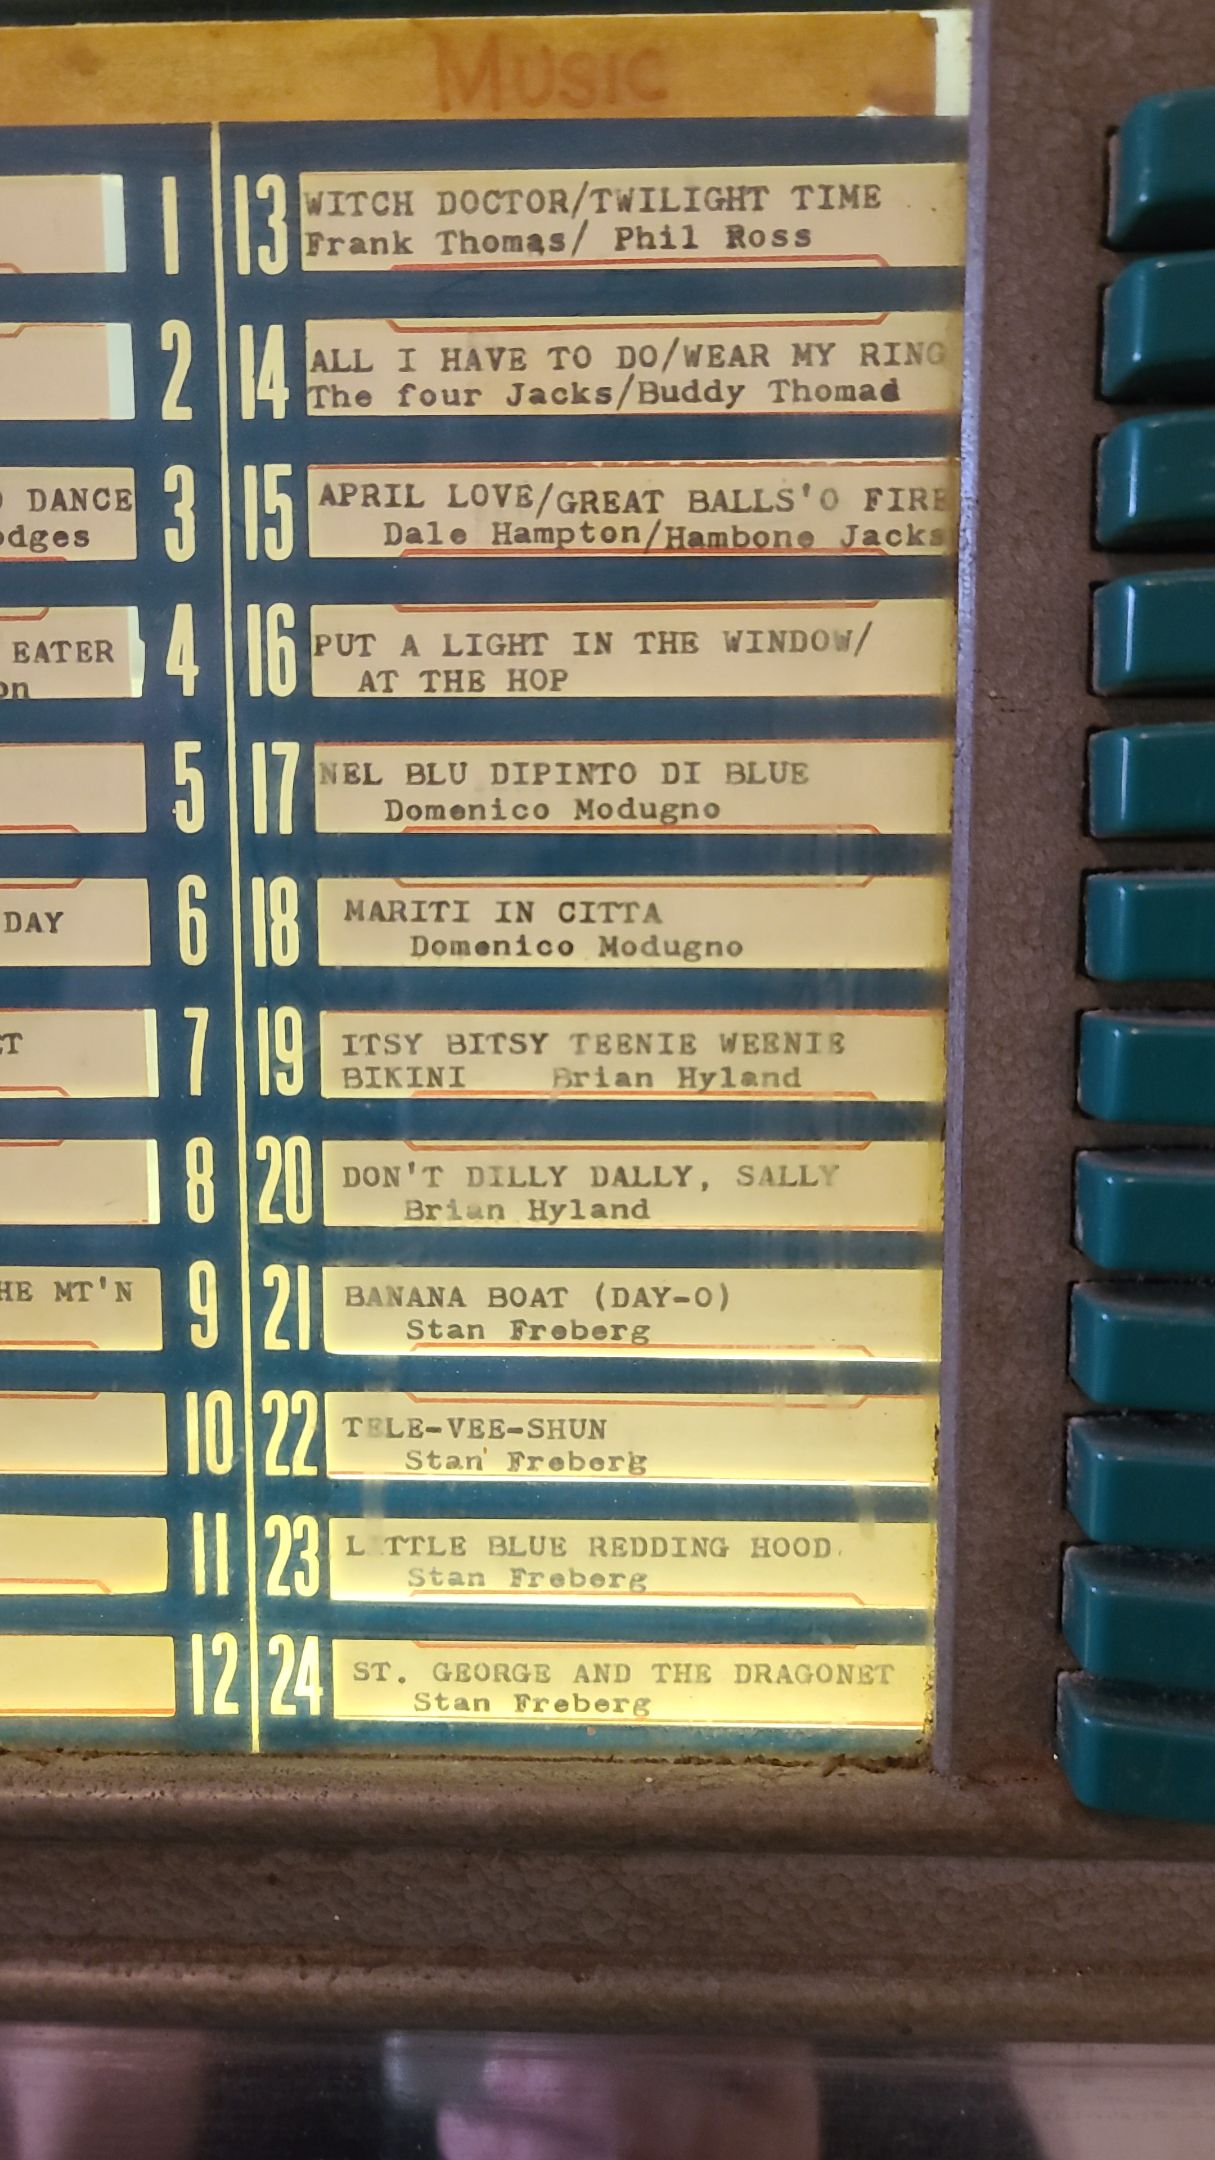 MUSIC
1
13
WITCH DOCTOR/TWILIGHT TIME
Frank Thomas/ Phil Ross
2
14
ALL I HAVE TO DO/WEAR MY RING
The four Jacks/Buddy Thomad
DANCE
3
15
APRIL LOVE/GREAT BALLS'O FIRE
Dale Hampton/Hambone Jacks
4
EATER
16
PUT A LIGHT IN THE WINDOW/
AT THE HOP
5
17
NEL BLU DIPINTO DI BLUE
Domenico Modugno
DAY
6
18
MARITI IN CITTA
Domenico Modugno
7
19
ITSY BITSY TEENIE WEENIE
BIKINI Brian Hyland
8
20
DON'T DILLY DALLY, SALLY
Brian Hyland
MT'N
9
21
BANANA BOAT (DAY-O)
Stan Freberg
10
22
TELE-VEE-SHUN
Stan Freberg
11
23
L TTLE BLUE REDDING HOOD
Stan Freberg
12
24
ST. GEORGE AND THE DRAGONET
Stan Freberg